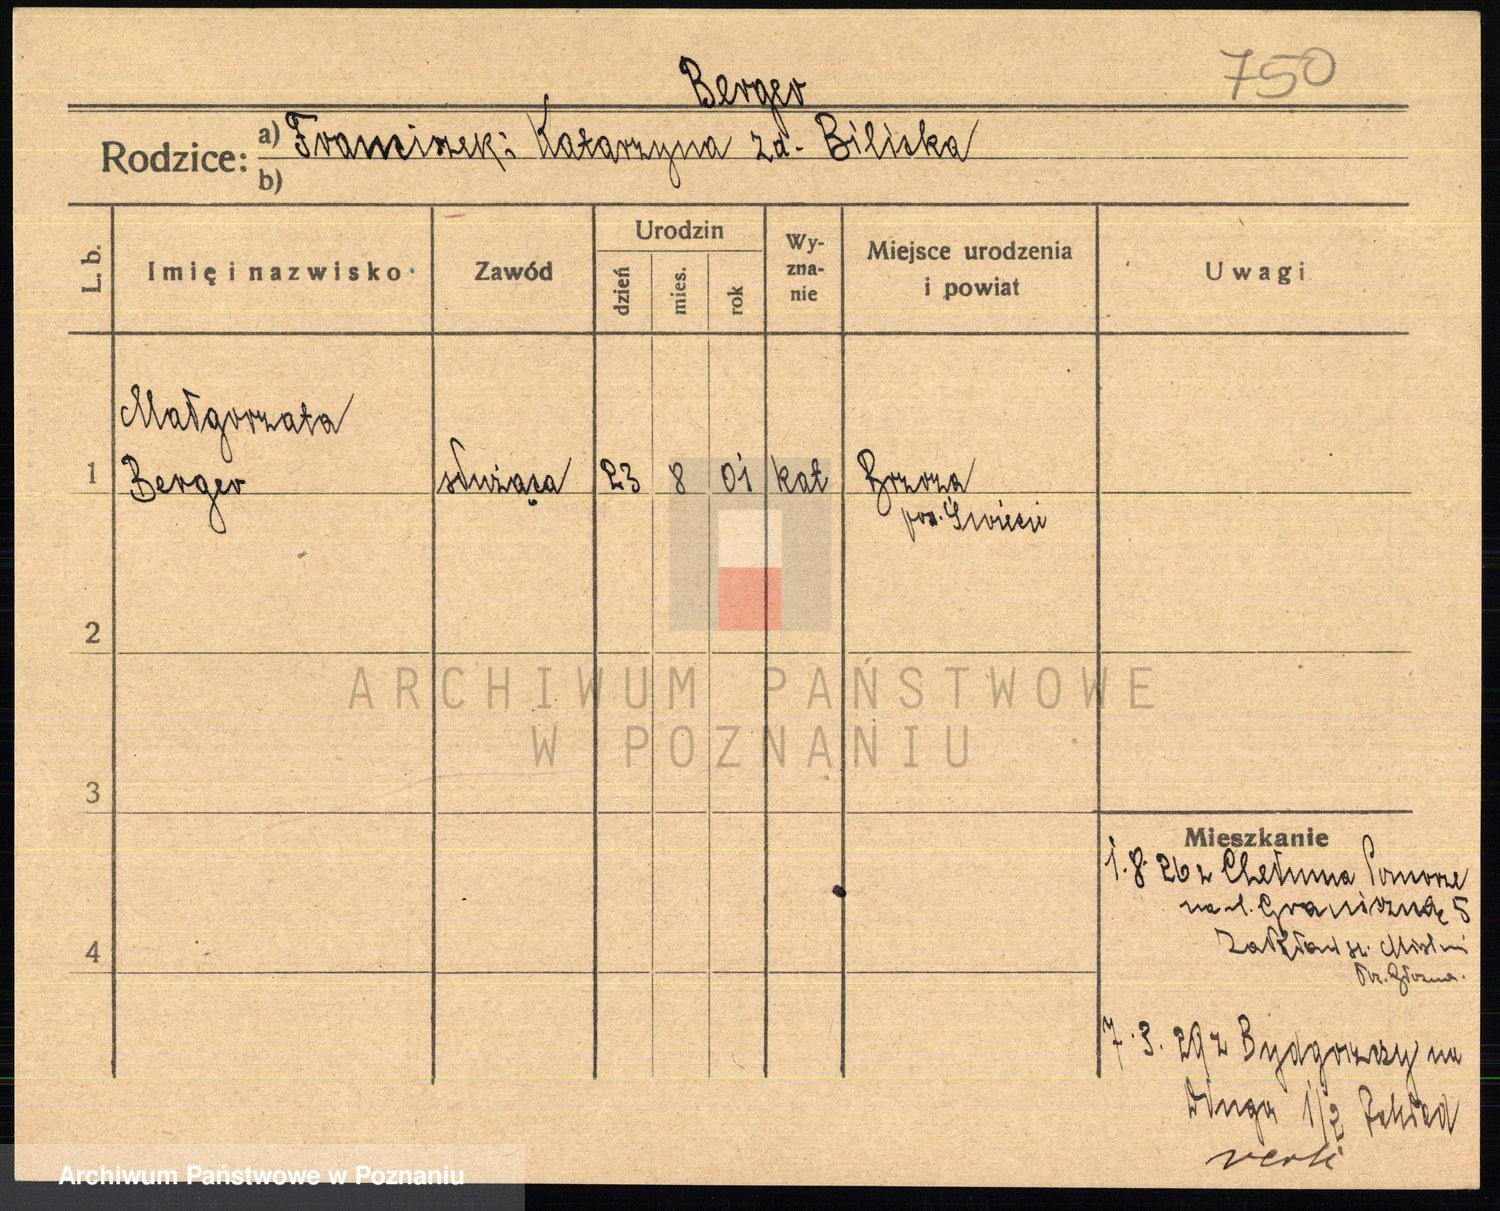 750
Berger
Rodzice: a) Franciszek i Katarzyna zd. Biliska
b)
L. b.
Imię i nazwisko
Zawód
Urodzin
dzień
mies.
rok
Wy-
zna-
nie
Miejsce urodzenia
i powiat
Uwagi
Małgorzata
1 Berger służąca 23 8 01 kat Brzoza
pow. Świecie
2
3
4
ARCHIWUM PAŃSTWOWE
W POZNANIU
Mieszkanie
1.8.26 z Chełmna Pomorze
na ul. Graniczną 5
Zakład
7.3.29 z Bydgoszczy na
Długa 1/2 Zakład
Archiwum Państwowe w Poznaniu